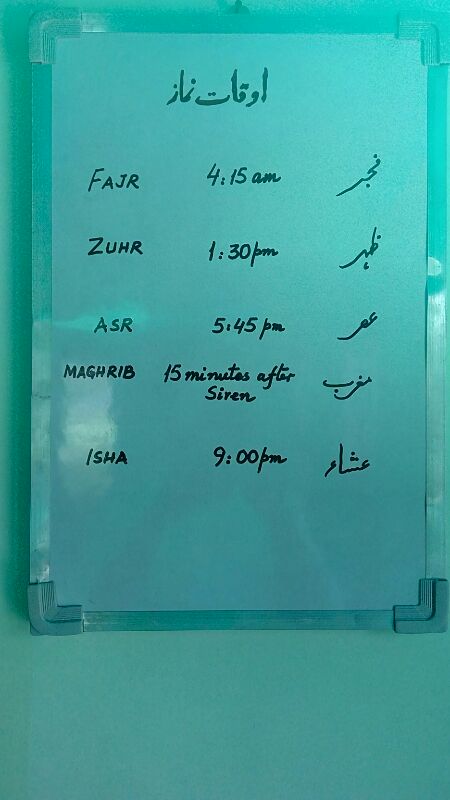 اوقات نماز
FAJR 4:15 am فجر
ZUHR 1:30pm ظہر
ASR 5:45 pm عصر
MAGHRIB 15 minutes after مغرب
Siren
ISHA 9:00pm عشاء